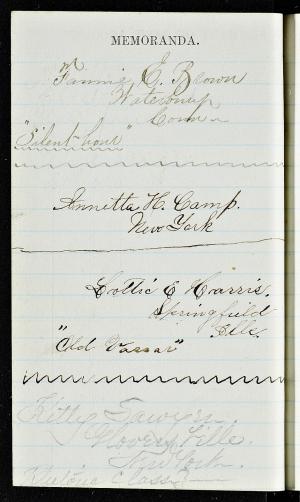 MEMORANDA.
Fannie E. Brown
Waterbury
Conn
"Silent hour"
Annetta H. Camp.
New York
Lottie E Harris.
Springfield
Ills.
"Old Vassar"
Kitty Sawyer.
Gloversville.
New York.
class